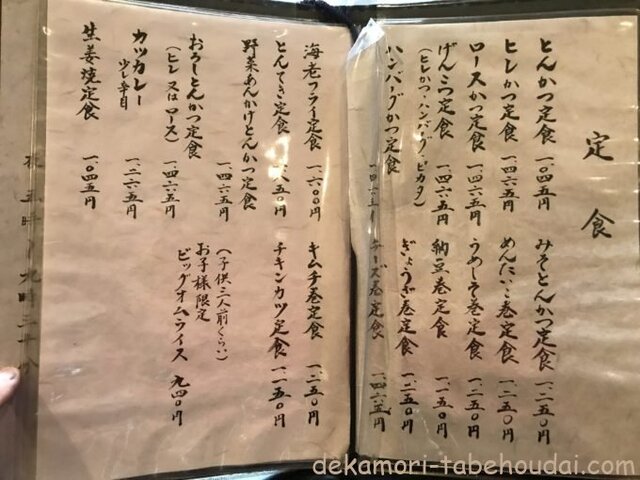 定食
とんかつ定食 一、〇四五円
ヒレかつ定食 一、四六五円
ロースかつ定食 一、四六五円
げんこつ定食 一、四六五円
(ヒレかつ・ハンバーグ・ピカタ)
ハンバーグかつ定食
みそとんかつ定食 一、二五〇円
めんたいこ巻定食 一、二五〇円
うめしそ巻定食 一、二五〇円
納豆巻定食 一、一五〇円
ぎょうざ巻定食 一、二五〇円
チーズ巻定食 一、四六五円
海老フライ定食 一、六〇〇円
とんてき定食 一、一五〇円
野菜あんかけとんかつ定食 一、四六五円
おろしとんかつ定食 一、四六五円
(ヒレ又はロース)
カツカレー 一、二六五円
少し辛目
生姜焼定食 一、〇四五円
キムチ巻定食 一、二五〇円
チキンカツ定食 一、一五〇円
(子供三人前くらい)
お子様限定
ビッグオムライス 九四〇円
dekamori-tabehoudai.com